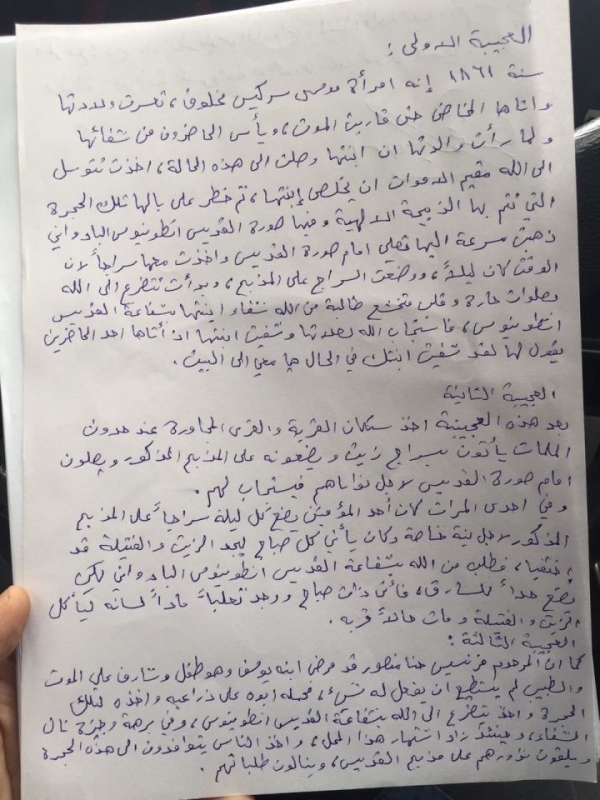 العجيبة الاولى :
سنة ١٨٦١ إنه امرأة موسى سركيس مخلوف، تعسرت ولادتها
واتاها المخاض حتى قاربت الموت، ويأس الحاضرون من شفائها
ولما رأت والدتها ان ابنتها وصلت الى هذه الحالة، اخذت تتوسل
الى الله مقيم الاموات ان يخلصى إبنتها، ثم خطر على بالها تلك الحجرة
التي تتم بها الذبيحة الالهية ومنها صورة القديس انطونيوس البادواني
ذهبت مسرعة اليها تصلى امام صورة القديس واخذت معها سراجاً لان
الوقت كان ليلاً، ووضعت السراج على المذبح، وبدأت تتضرع الى الله
بصلوات حارة وقلب متخشع طالبة من الله شفاء ابنتها بشفاعة القديس
انطونيوس، فاستجاب الله لصلاتها وشفيت ابنتها اذ أتاها احد الحاضرين
يقول لها لقد شفيت ابنتك في الحال هيا معي الى البيت.
العجيبة الثانية
بعد هذه العجيبة اخذ سكان القرية والقرى المجاورة عند حدوث
الملمات يأتون بسراج زيت ويضعونه على المذبح المذكور ويصلون
امام صورة القديس لاجل نواياهم فيستجاب لهم.
وفي احدى المرات كان أحد المؤمنين يضع كل ليلة سراجاً على المذبح
المذكور لاجل نية خاصة وكان يأتي كل صباح ليجد الزيت والفتيلة قد
اختفيا، فطلب من الله بشفاعة القديس انطونيوس البادواني لكي
يضع حداً للسارق، فأتى ذات صباح ووجد ثعلباً ماداً لسانه ليأكل
الزيت والفتيلة ومات حالاً قربه.
العجيبة الثالثة :
كما ان المرحوم فرنسيس حنا منصور قد مرض ابنه يوسف وهو طفل وشارف على الموت
والطبيب لم يستطع ان يفعل له شيء، فحمله ابوه على ذراعيه واخذه لتلك
الحجرة واخذ يتضرع الى الله بشفاعة القديس انطونيوس، وفي برهة وجيزة نال
الشفاء، وحينئذ زاد اشتهار هذا المحل، واخذ الناس يتوافدون الى هذه الحجرة
ويلقون نذورهم على مذبح القديس، وينالون طلباتهم.